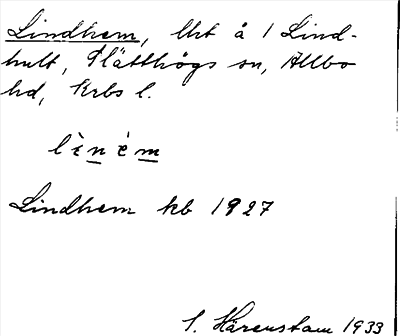 Lindhem, lht å 1 Lind-
hult, Slätthögs sn, Allbo
hd, Krbs l.
lìném
Lindhem kb 1927
S. Härenstam 1933